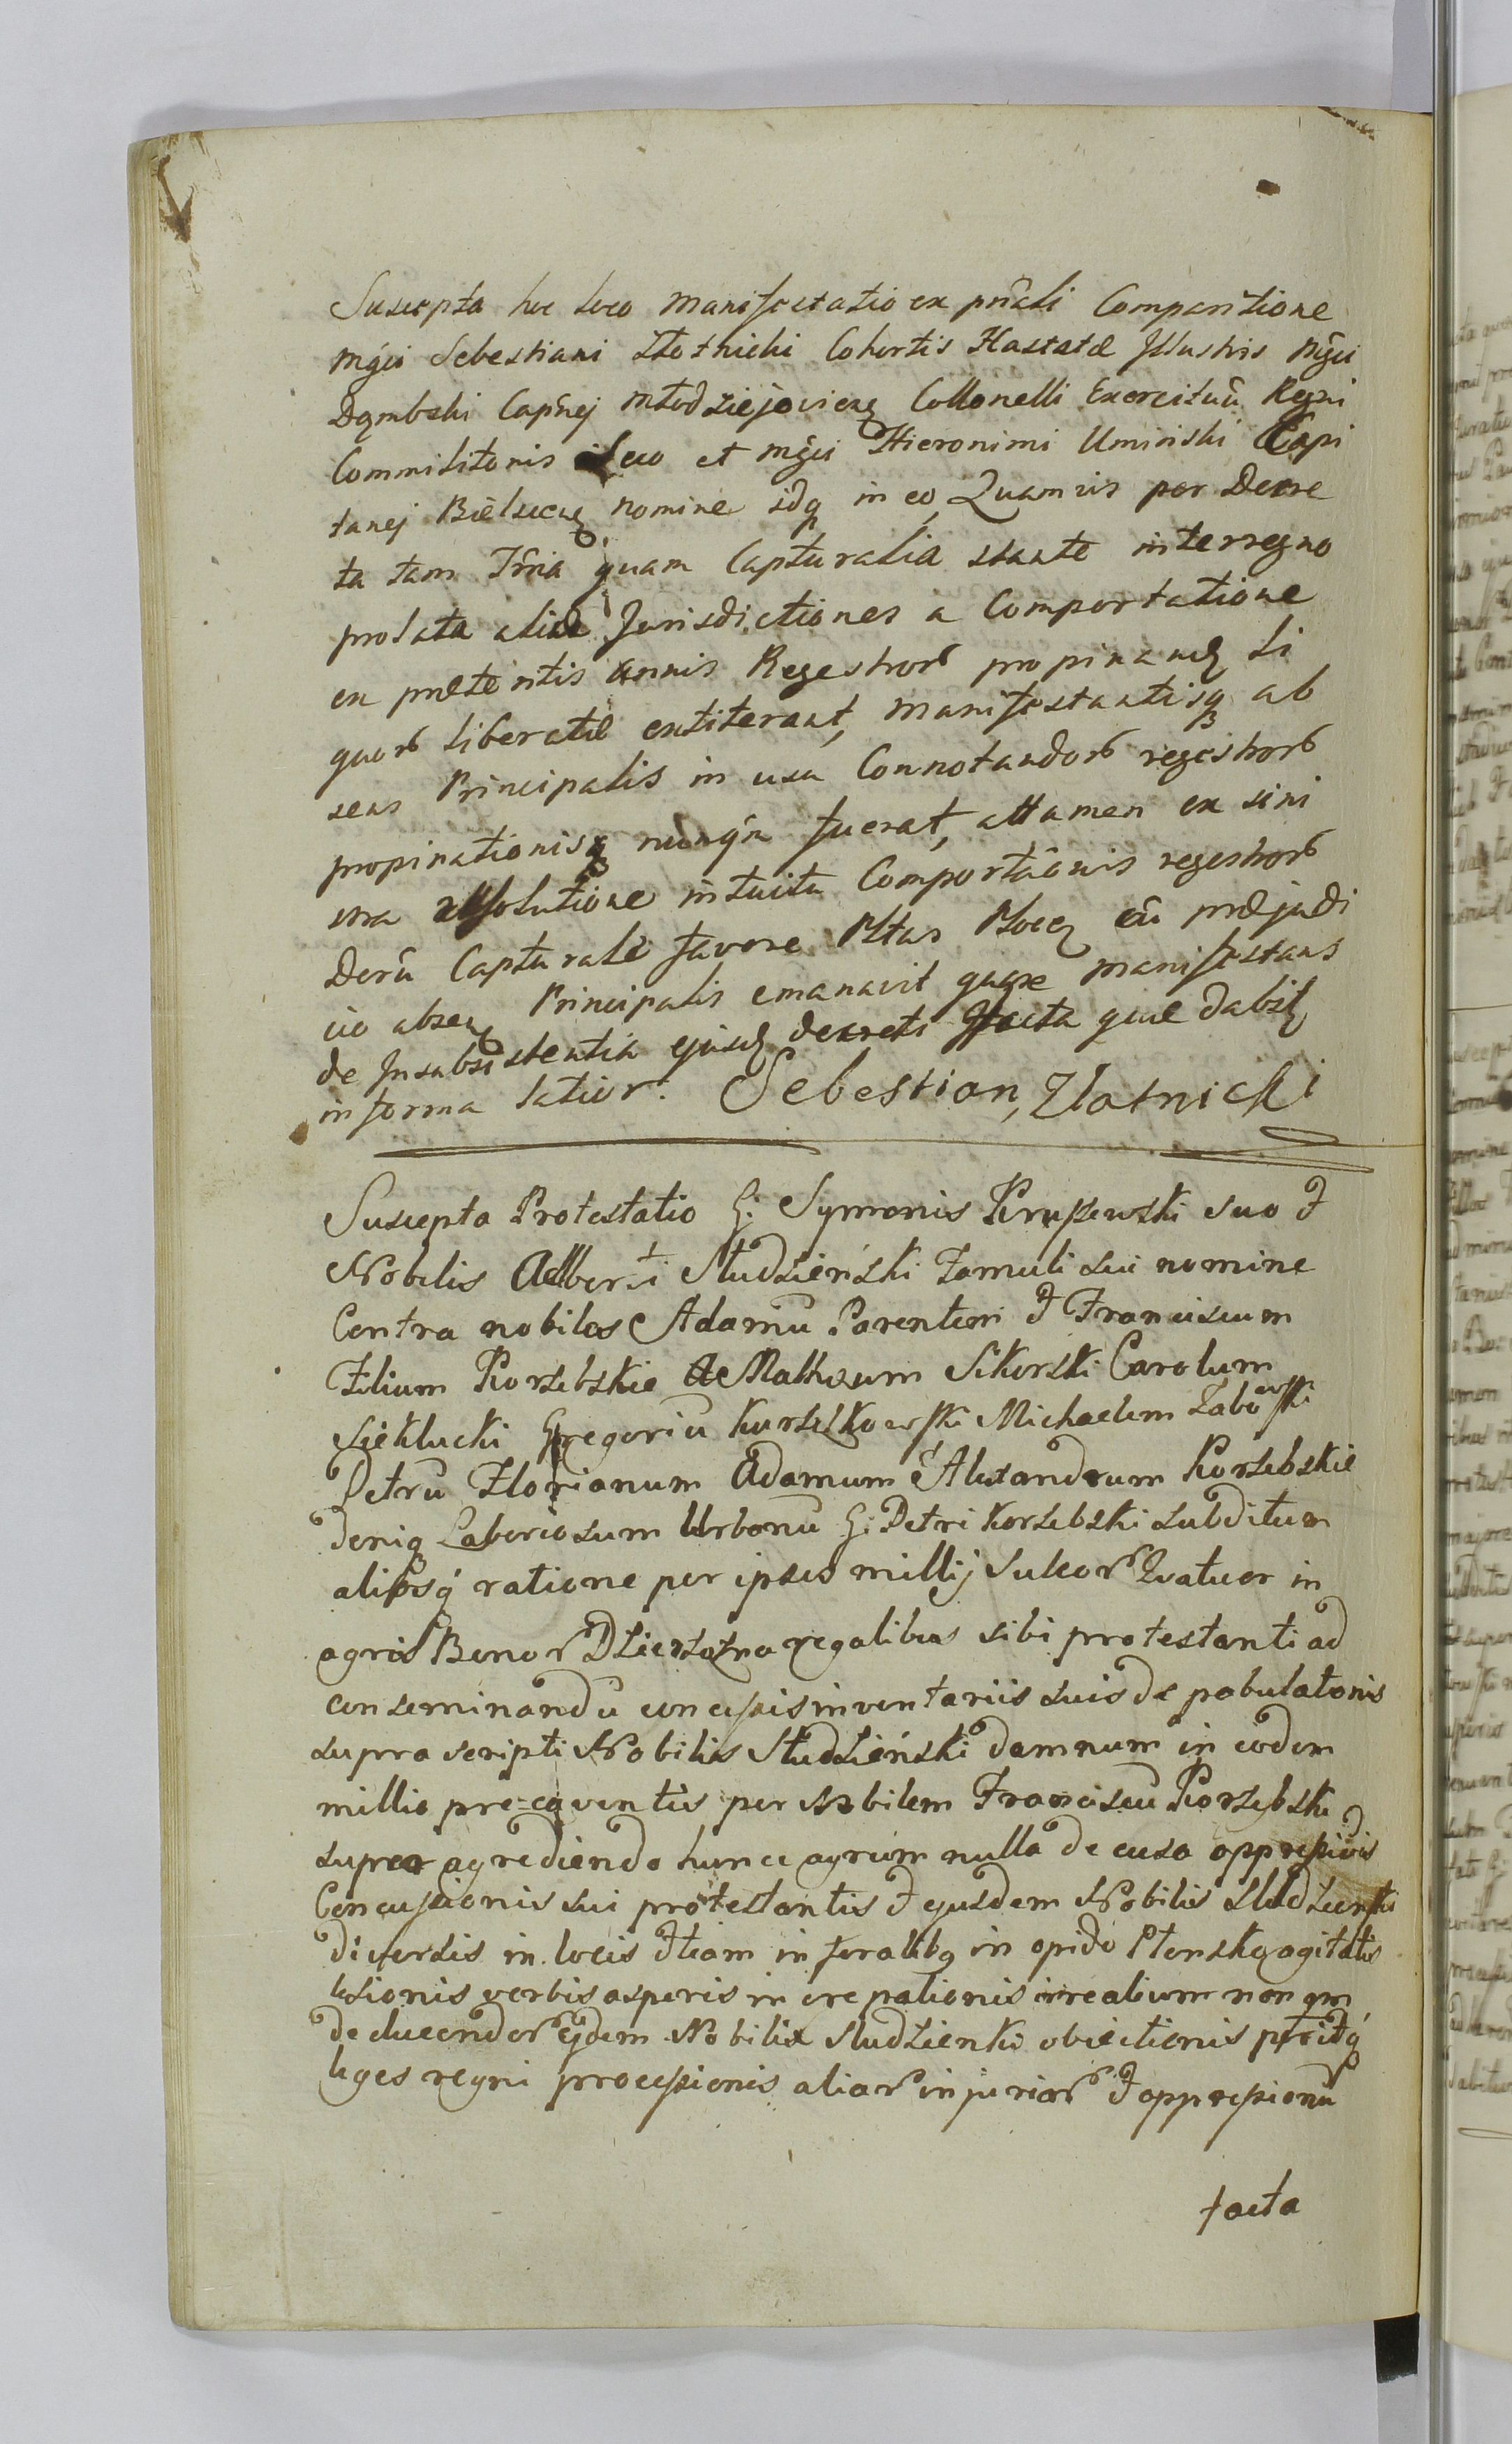 Suscepta hoc loco Manifestatio ex pñali Comparitione
Mgci Sebestiani Złotnicki Cohortis Hastatæ Illustris Mgci
Dąmbski Capnej Młodziejoviens Collonelli Exercituũ Regni
Commilitonis suo et Mgci Hieronimi Uminski Capi
tanej Bielscens nomine idq in eo, Quamvis per Decre
ta tam Trña quam Capturalia stante interregno
prolata aliæ Jurisdictiones a Comportatione
ex præteritis annis Regestror propinand li
quor liberatæ extiterant, manifestantisq ab
sens Principalis in usu Connotandor regestror
propinationisq nunqũ fuerat, attamen ex sini
stra absolutione intuitu Comportaõnis regestror
Decrũ Capturale favore Pltas Plocen cũ præjudi
cio absen Principalis emanavit quare manifestans
de Insubsistentia ejusd decreti facta quæ dabit
in forma latior. Sebestian, Zlotnicki
Suscepta Protestatio G: Symonis Krupsewski suo &
Nobilis Alberti Studzieński Famuli sui nomine
Contra nobiles Adamũ Parentem & Franciscum
Filium Korzebskie Ac Matheum Sikorski Carolum
Siekłucki Gregoriũ Kurszkowski Michaelem Zabowski
Petrũ Florianum Adamum & Alexandrum Korzebskie
Deniq Laboriosum Urbanũ G: Petri Korzebski subditum
aliosq ratione per ipsos millij sulcor Quatuor in
agris Bonor regalibus sibi protestanti ad
conseminandũ concessis inventariis suis depabulationis
supra scripti Nobilis Studzieński damnum in eodem
millio precaventis per Nobilem Franciscũ Korzebski
super agrediendo hunce agrum nulla de causa oppressionis
Concussionis sui protestantis & ejusdem Nobilis Studzienski
diversis in locis &tiam in foralibq in opido Płonsko agitatis
lesionis verbis asperis in crepationis irrealium non
deducendor Ejdem Nobilis Studzienki obiectionis
leges regni processionis aliar injuriar & oppressionũ
facta